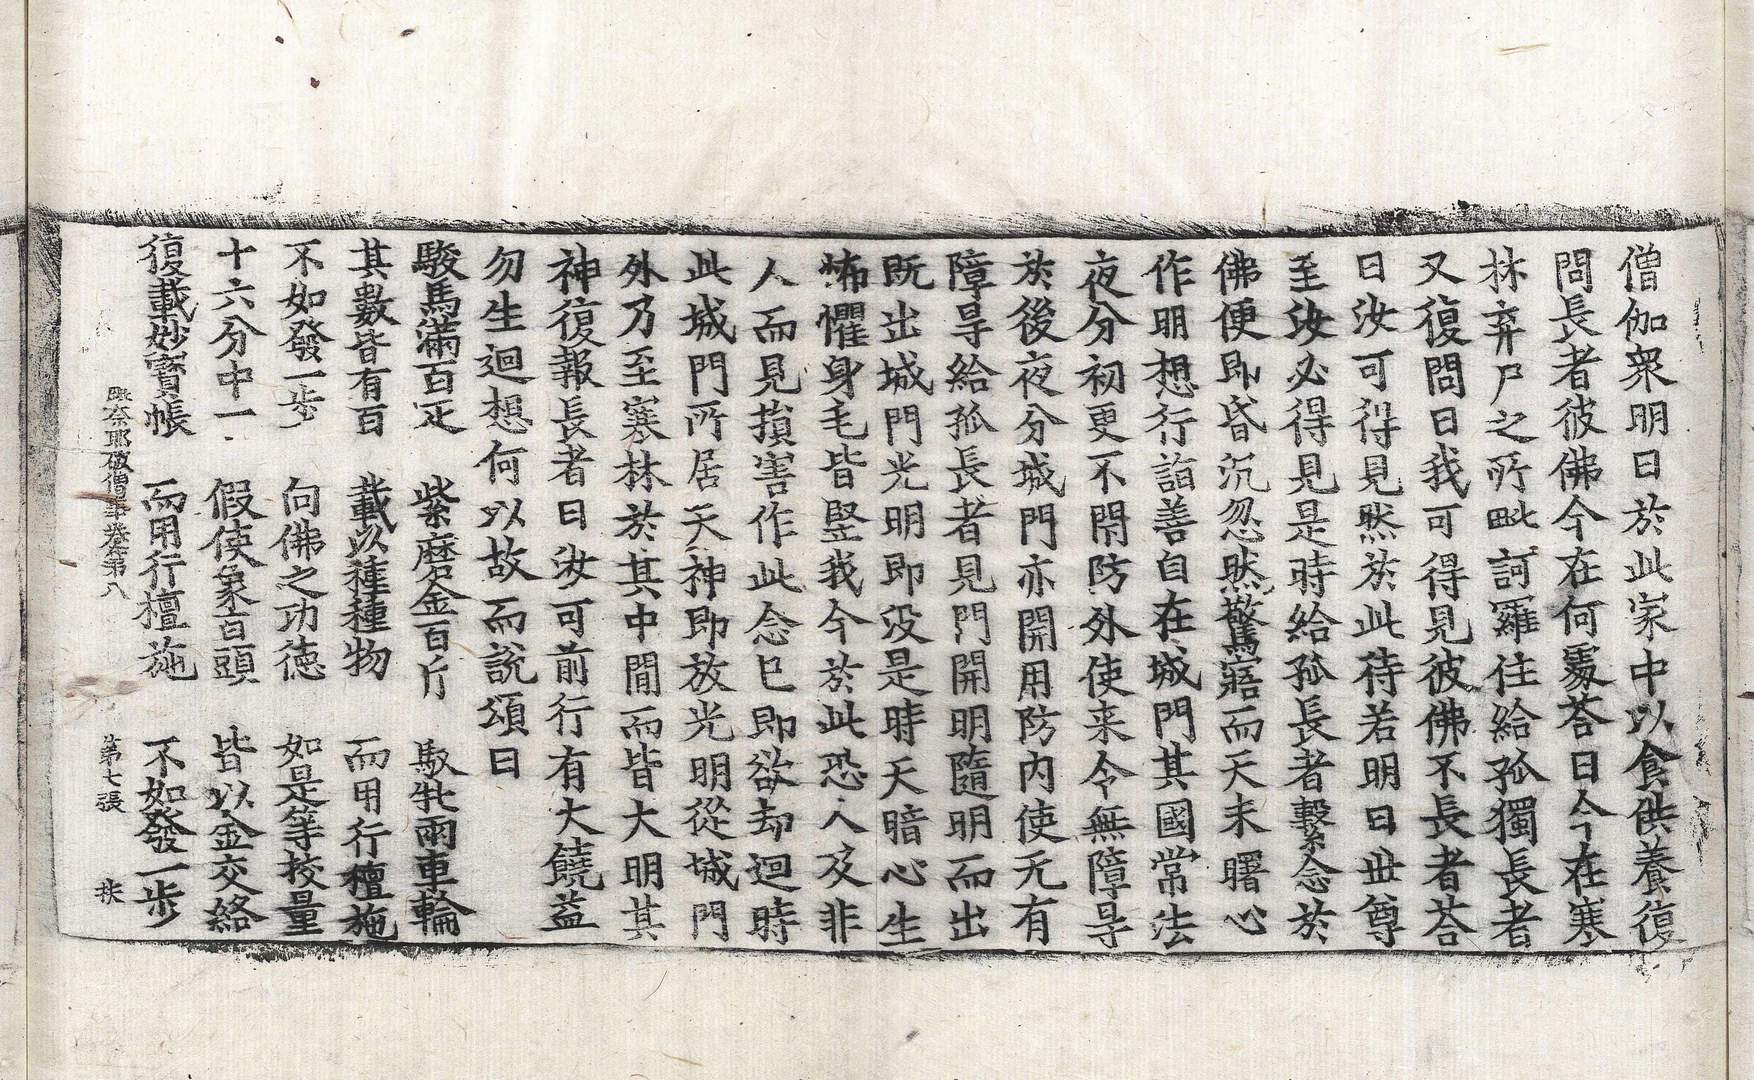 僧伽衆明日於此家中以食供養復
問長者彼佛今在何處荅日今在寒
林弃尸之所毗訶羅住給孤獨長者
又復問日我可得見彼佛不長者荅
日汝可得見然於此待若明日世尊
至汝必得見是時給孤長者繫念於
佛便即昏沉忽然驚寤而天未曙心
作明想行詣善自在城門其國常法
夜分初更不閇防外使来令無障㝵
於後夜分城門亦開用防内使无有
障㝵給孤長者見門開明隨明而出
既出城門光明即没是時天暗心生
怖懼身毛皆竪我今於此恐人及非
人而見損害作此念已即欲却迴時
此城門所居天神即放光明從城門
外乃至寒林於其中間而皆大明其
神復報長者日汝可前行有大饒益
勿生迴想何以故而說頌日
駿馬滿百疋　紫磨金百斤　馭牝雨車輪
其數皆有百　載以種種物　而用行檀施
不如發一步　向佛之功徳　如是等挍量
十六分中一　假使象百頭　皆以金交絡
復載妙寶帳　而用行檀施　不如發一步
毗奈耶破僧事卷第八　第七張　扶